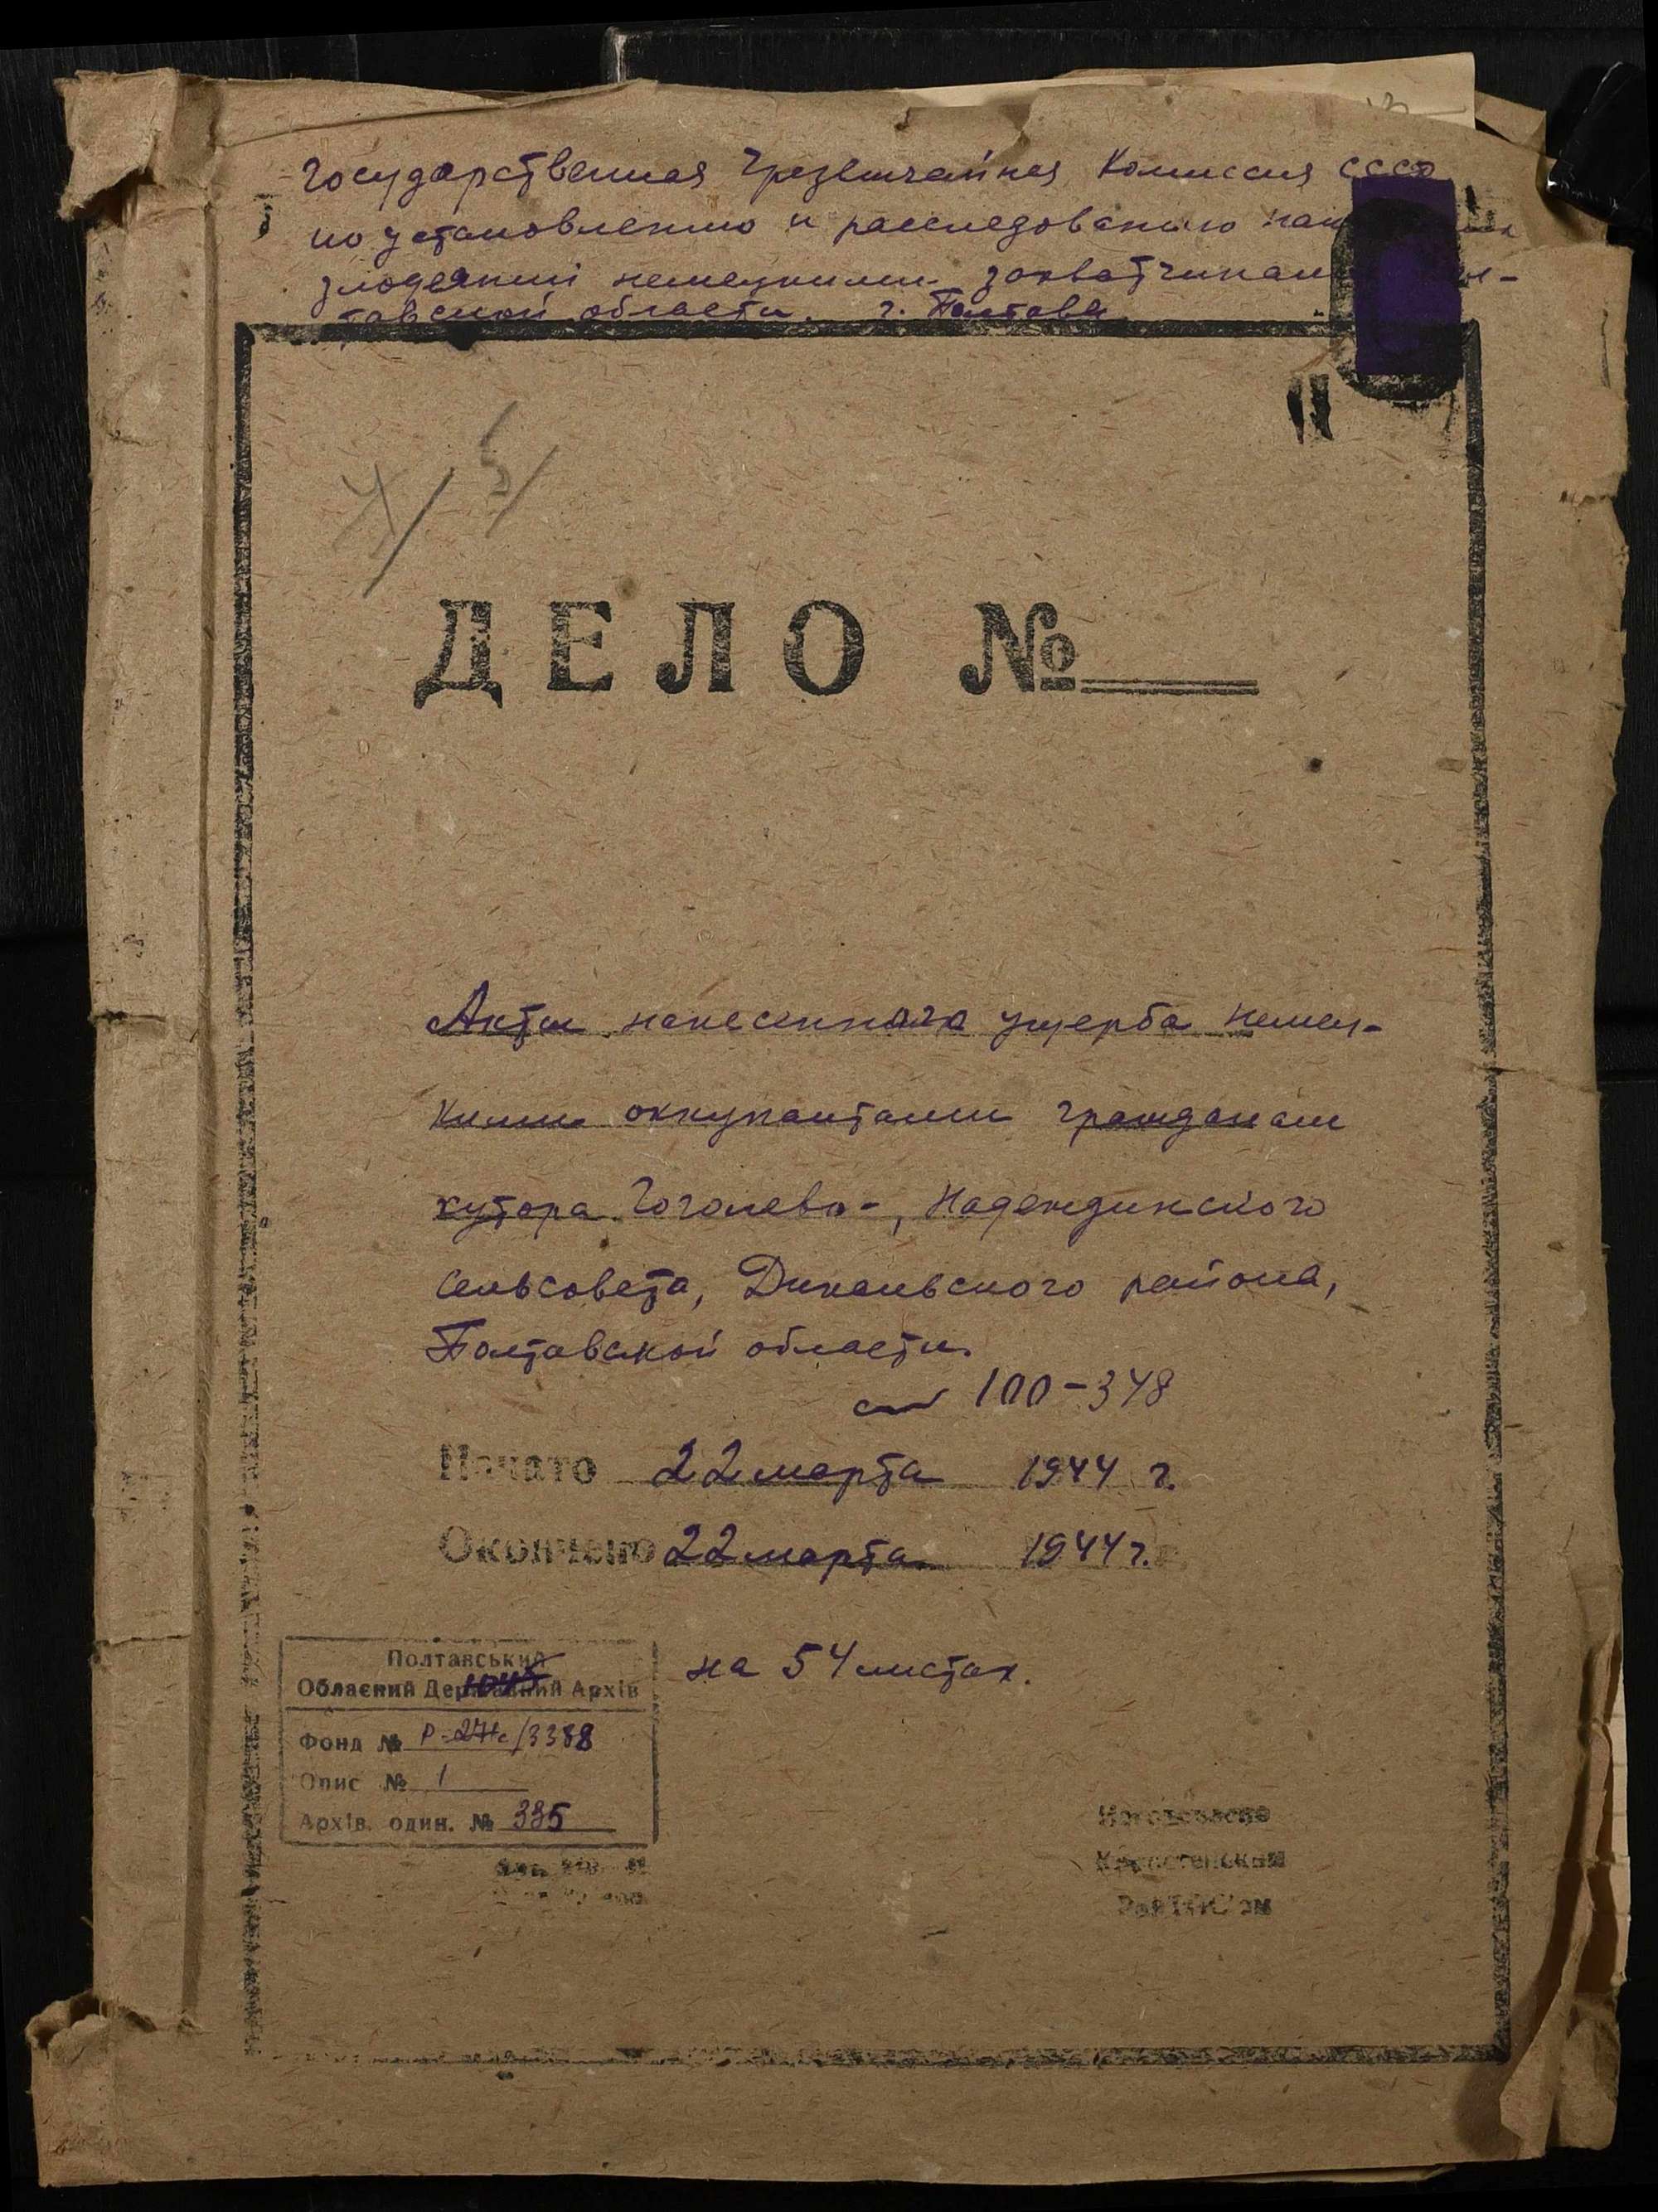 Государственная Чрезвычайная Комиссия СССР
по установлению и расследованию
злодеяний немецкими захватчиками
тавской области. г. Полтава
4/5/
ДЕЛО №
Акты нанесенного ущерба немец-
кими оккупантами гражданам
хутора Гоголево-, Надеждинского
сельсовета, Диканьского района,
Полтавской области.
100-348
Начато 22 марта 1944 г.
Окончено 22 марта 1944 г.
на 54 листах.
Полтавський
Обласний Державний Архів
1045
Фонд № Р-3388
Опис № 1
Архів. один. № 335